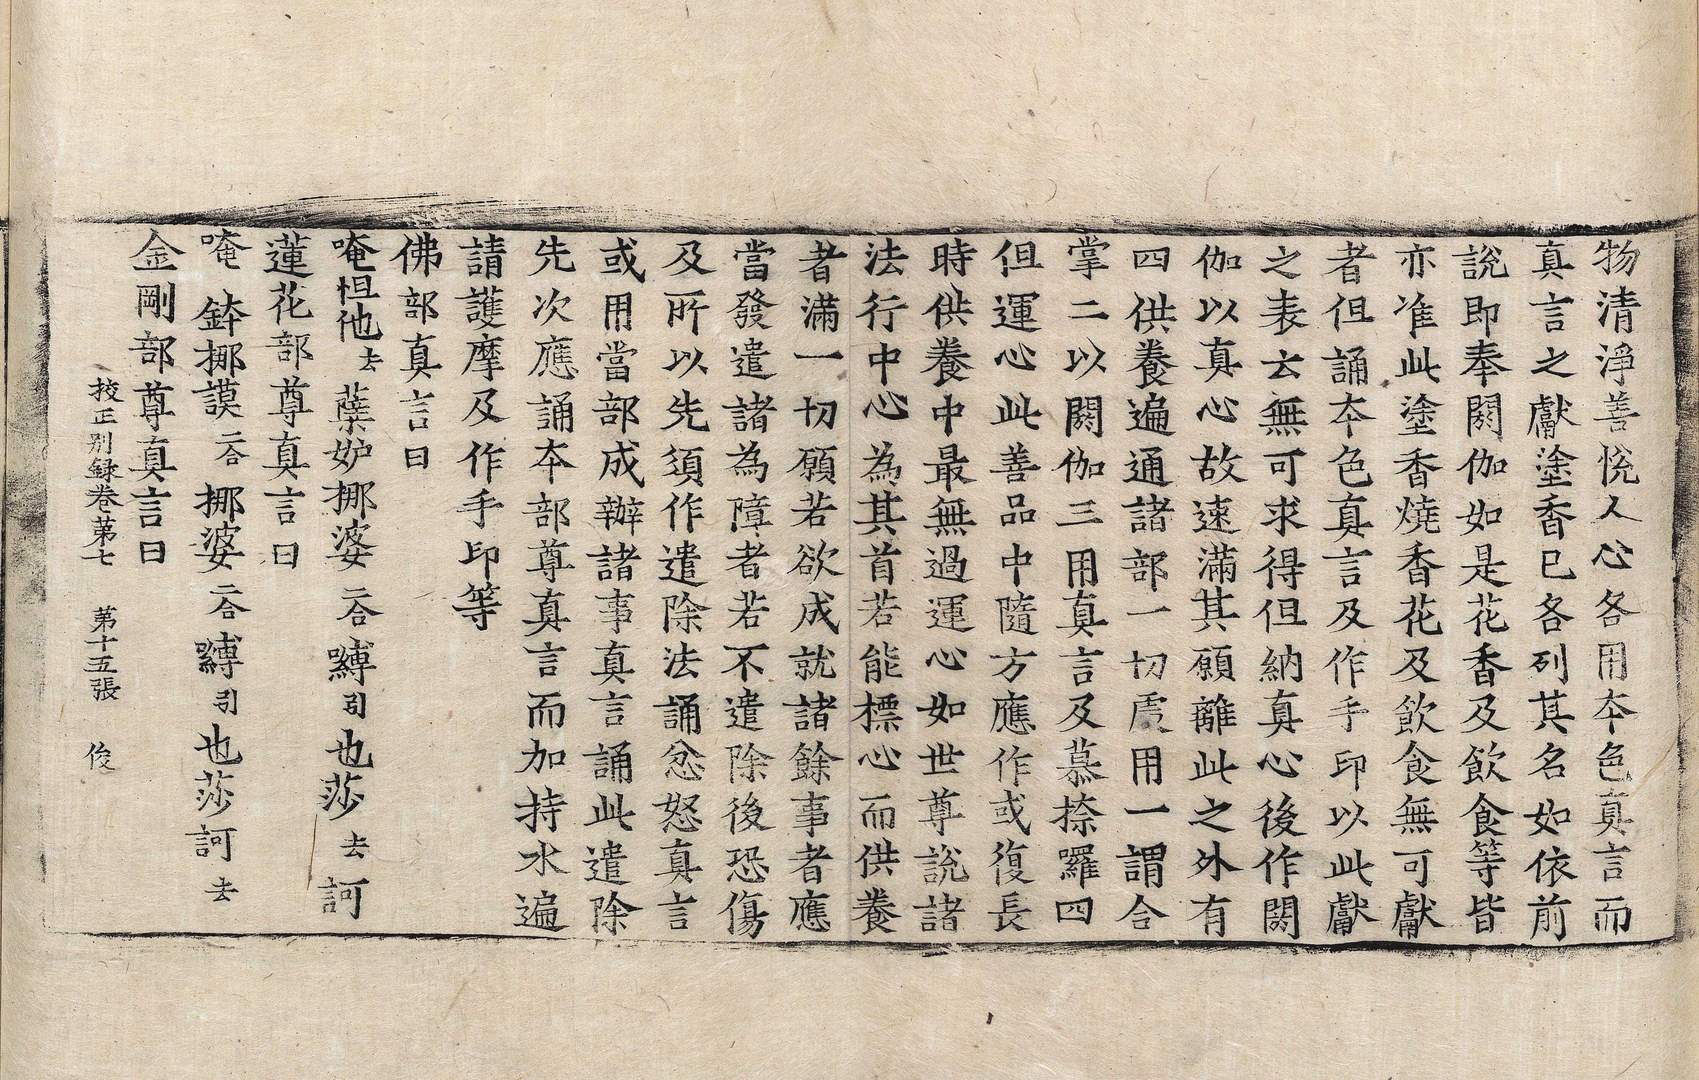 物清淨善悅人心各用本色真言而
真言之獻塗香已各列其名如依前
說即奉閼伽如是花香及飲食等皆
亦准此塗香燒香花及飲食無可獻
者但誦本色真言及作手印以此獻
之表云無可求得但納真心後作閼
伽以真心故速滿其願離此之外有
四供養遍通諸部一切處用一謂合
掌二以閼伽三用真言及慕捺囉四
但運心此善品中隨方應作或復長
時供養中最無過運心如世尊說諸
法行中心為其首若能標心而供養
者滿一切願若欲成就諸餘事者應
當發遣諸為障者若不遣除後恐傷
及所以先須作遣除法誦忿怒真言
或用當部成辦諸事真言誦此遣除
先次應誦本部尊真言而加持水遍
請護摩及作手印等
佛部真言曰
唵怛他去蘗妒挪婆二合嚩引也莎去訶
蓮花部尊真言曰
唵 鉢挪謨二合 挪婆二合嚩引也莎訶去
金剛部尊真言曰
挍正別録卷第七 第十五張 俊